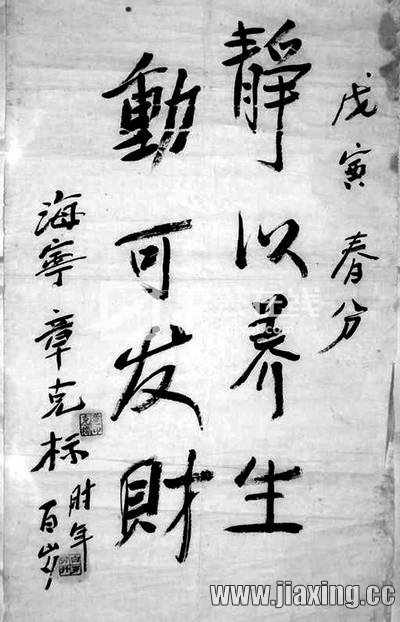 戊寅春分
靜以养生
動可发財
海寧章克标时年
百岁
www.jiaxing.cc